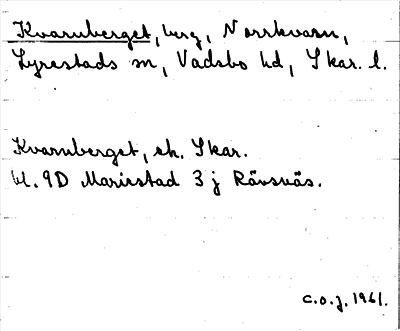 Kvarnberget, berg, Norrkvarn,
Lyrestads sn, Vadsbo hd, Skar. l.
Kvarnberget, ek. Skar.
bl. 9D Mariestad 3 j Rävsnäs.
C.O.J. 1961.